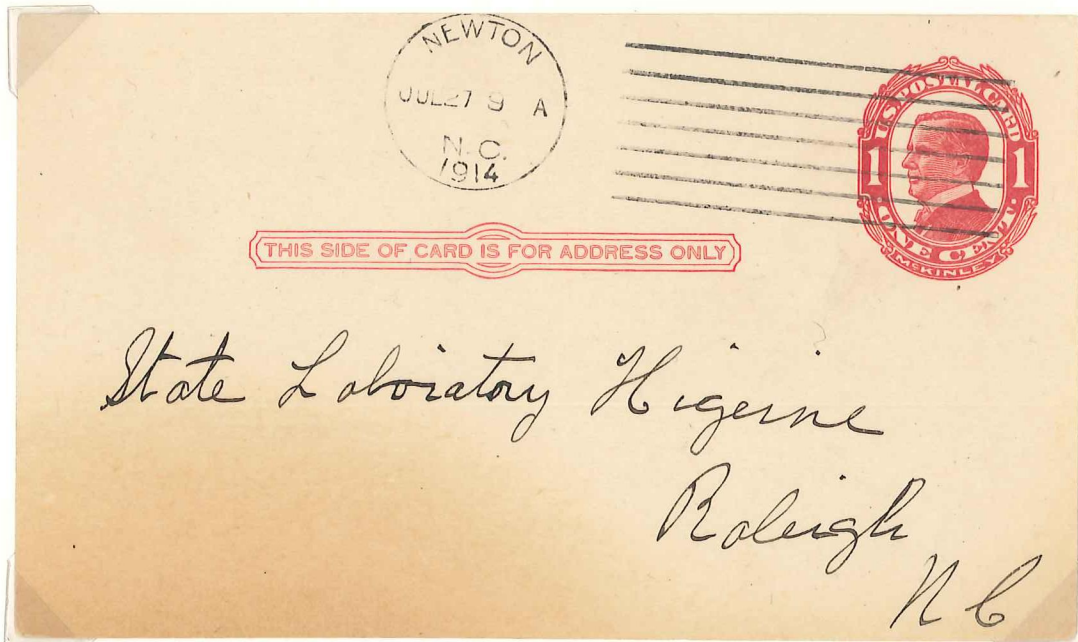 NEWTON
JUL 27 9 A
N.C.
1914
U.S. POSTAL CARD
1 1
ONE CENT
McKINLEY
THIS SIDE OF CARD IS FOR ADDRESS ONLY
State Laboratory Higeine
Raleigh
N C